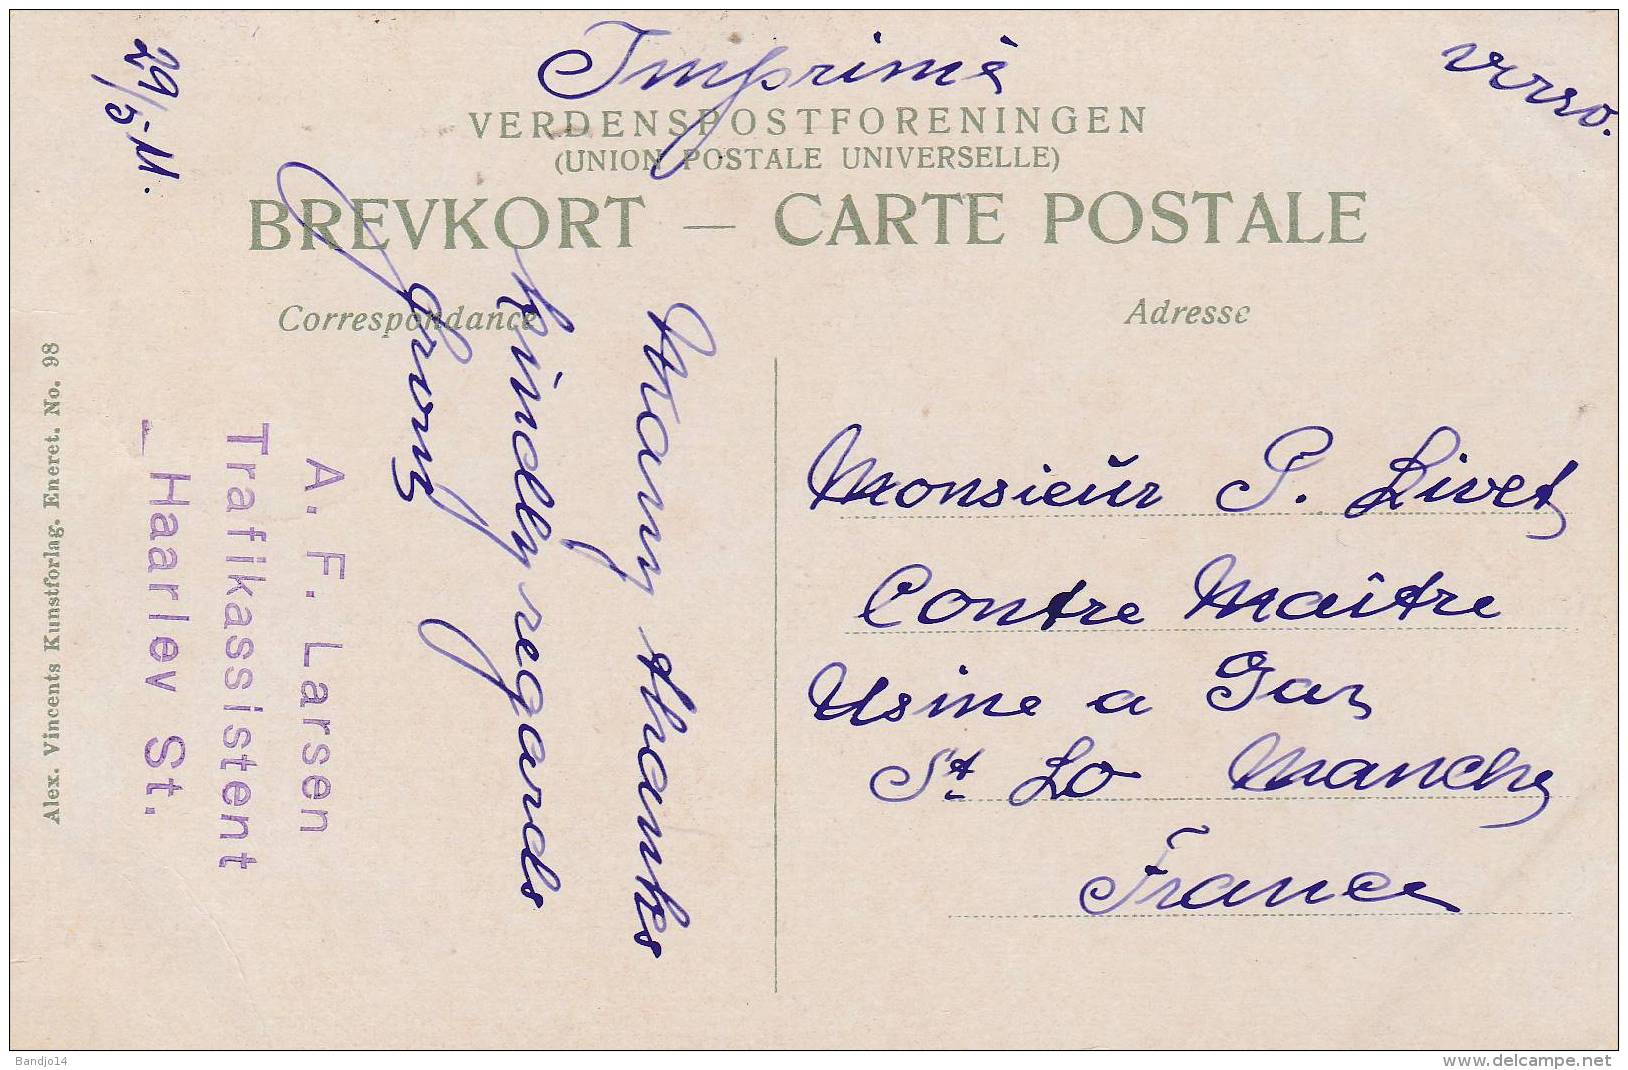 Imprimé
verso.
29/5-11.
VERDENSPOSTFORENINGEN
(UNION POSTALE UNIVERSELLE)
BREVKORT — CARTE POSTALE
Correspondance
Adresse
Many thanks
Kindly regards
yours
A. F. Larsen
Trafikassistent
Haarlev St.
Alex. Vincents Kunstforlag. Eneret. No. 98
Monsieur P. Livet
Contre Maître
Usine a Gaz
St Lo Manche
France
Bandjo14
www.delcampe.net